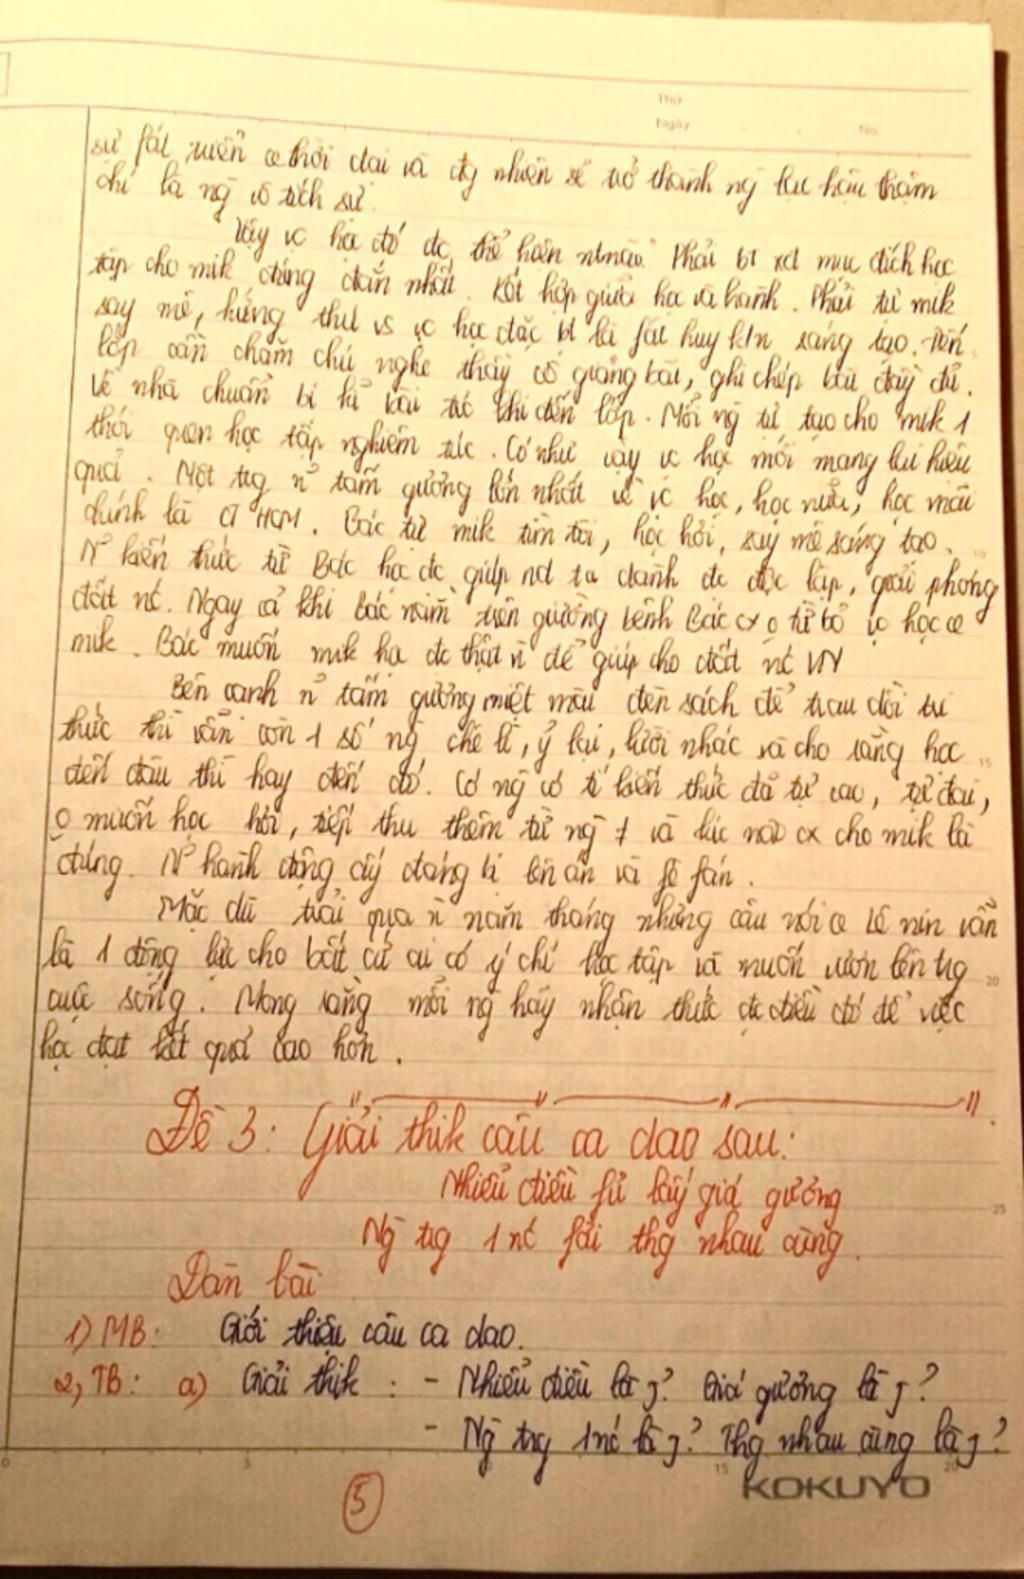 Thứ
Ngày No.
sự fát triển of thời đại và đg nhiên sẽ trở thành ng lạc hậu thậm
chí là ng vô tích sự.
Vậy vc học đó đc thể hiện ntnào? Phải bt xđ mục đích học
tập cho mik đúng đắn nhất. Kết hợp giữa học và hành. Phải tự mik
say mê, hứng thú vs vc học đặc bt là fát huy k/n sáng tạo. Đến
lớp cần chăm chú nghe thầy cô giảng bài, ghi chép bài đầy đủ.
Về nhà chuẩn bị kĩ bài trc khi đến lớp. Mỗi ng tự tạo cho mik 1
thói quen học tập nghiêm túc. Có như vậy vc học mới mang lại hiệu
quả. Một trg n~ tấm gương lớn nhất về vc học, học nữa, học mãi
chính là CT HCM. Bác tự mik tìm tòi, học hỏi, say mê sáng tạo.
N~ kiến thức từ Bác học đc giúp nd ta dành đc độc lập, giải phóng
đất nc. Ngay cả khi Bác nằm trên giường bệnh Bác cx o từ bỏ vc học of
mik. Bác muốn mik học đc thật n` để giúp cho đất nc VN
Bên cạnh n~ tấm gương miệt mài đèn sách để trau dồi tri
thức thì vẫn còn 1 số ng chê lì, ỷ lại, lười nhác và cho rằng học
đến đâu thì hay đến đó. Có ng có tí kiến thức đã tự cao, tự đại,
o muốn học hỏi, tiếp thu thêm từ ng ≠ và lúc nào cx cho mik là
đúng. N~ hành động ấy đáng bị lên án và fê fán.
Mặc dù trải qua n` năm tháng nhưng câu nói of Lê nin vẫn
là 1 động lực cho bất cứ ai có ý chí học tập và muốn vươn lên trg
cuộc sống. Mong rằng mỗi ng hãy nhận thức đc điều đó để việc
học đạt kết quả cao hơn.
Đề 3: Giải thik câu ca dao sau:
Nhiễu điều fủ lấy giá gương
Ng` trg 1 nc fải thg nhau cùng.
Dàn bài
1) MB: Giới thiệu câu ca dao.
2, TB: a) Giải thik: - Nhiễu điều là j? Giá gương là j?
- Ng` trg 1 nc là j? Thg nhau cùng là j?
0 5 15 20
KOKUYO
5